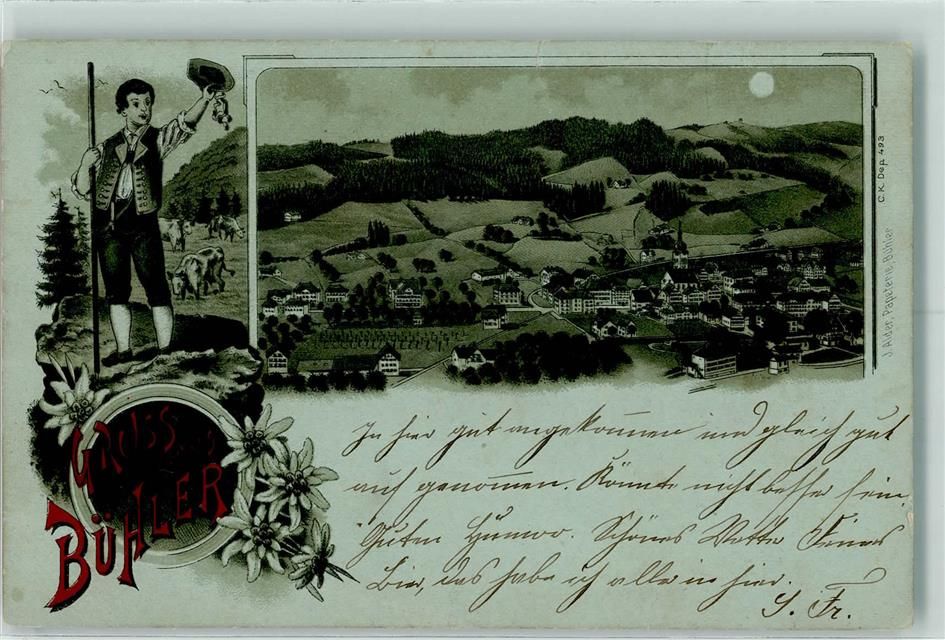 C. K. Dep. 493
J. Alder, Papeterie, Bühler
GRUSS aus
BÜHLER
In hier gut angekommen und gleich gut
auf genommen. Könnte nicht besser sein.
Guten Humor. Schönes Wetter Feines
Bier, das habe ich alle in hier.
S. Fr.